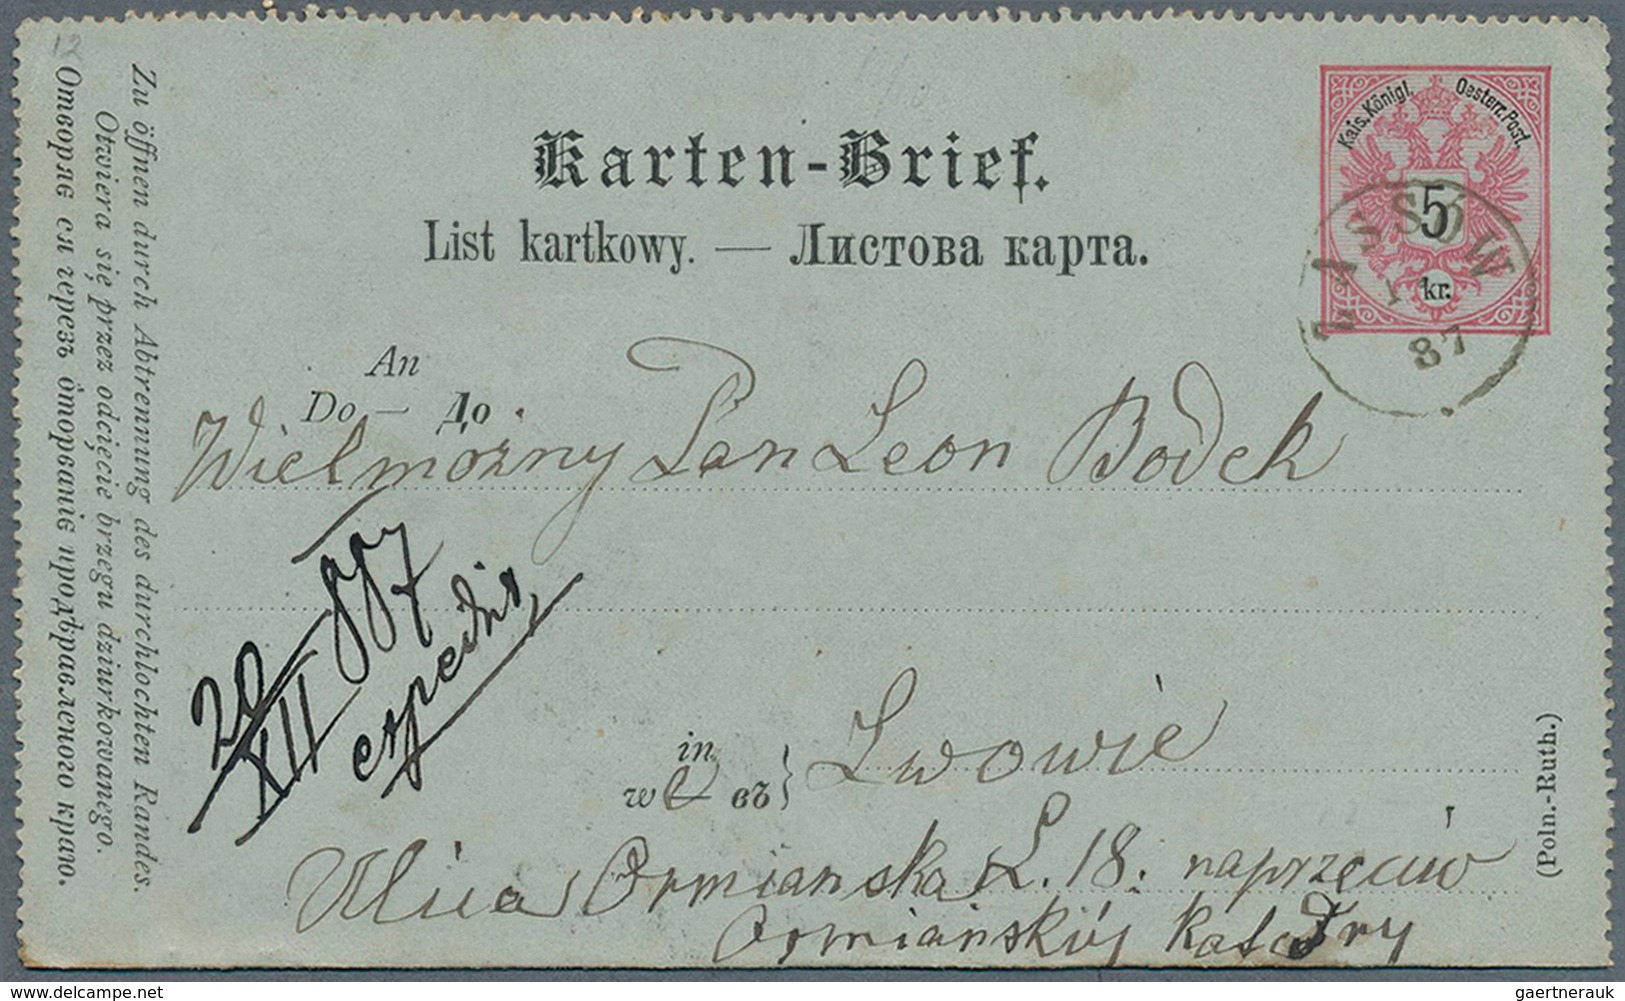 12
Zu öffnen durch Abtrennung des durchlochten Randes.
Otwiera się przez odcięcie brzegu dziurkowanego.
Отворяє ся черезъ ôторванiє продѣравленого краю.
Kais. Königl. Oesterr. Post.
5
kr.
ZASSÓW
87
Karten-Brief.
List kartkowy. — Листова карта.
An
Do — До
Wielmożny Pan Leon Bodek
20/XII 887
in
w — въ
we Lwowie
Ulica Ormianska L. 18. naprzeciw
Ormianskiéj Katedry
(Poln.-Ruth.)
delcampe.net
gaertnerauk